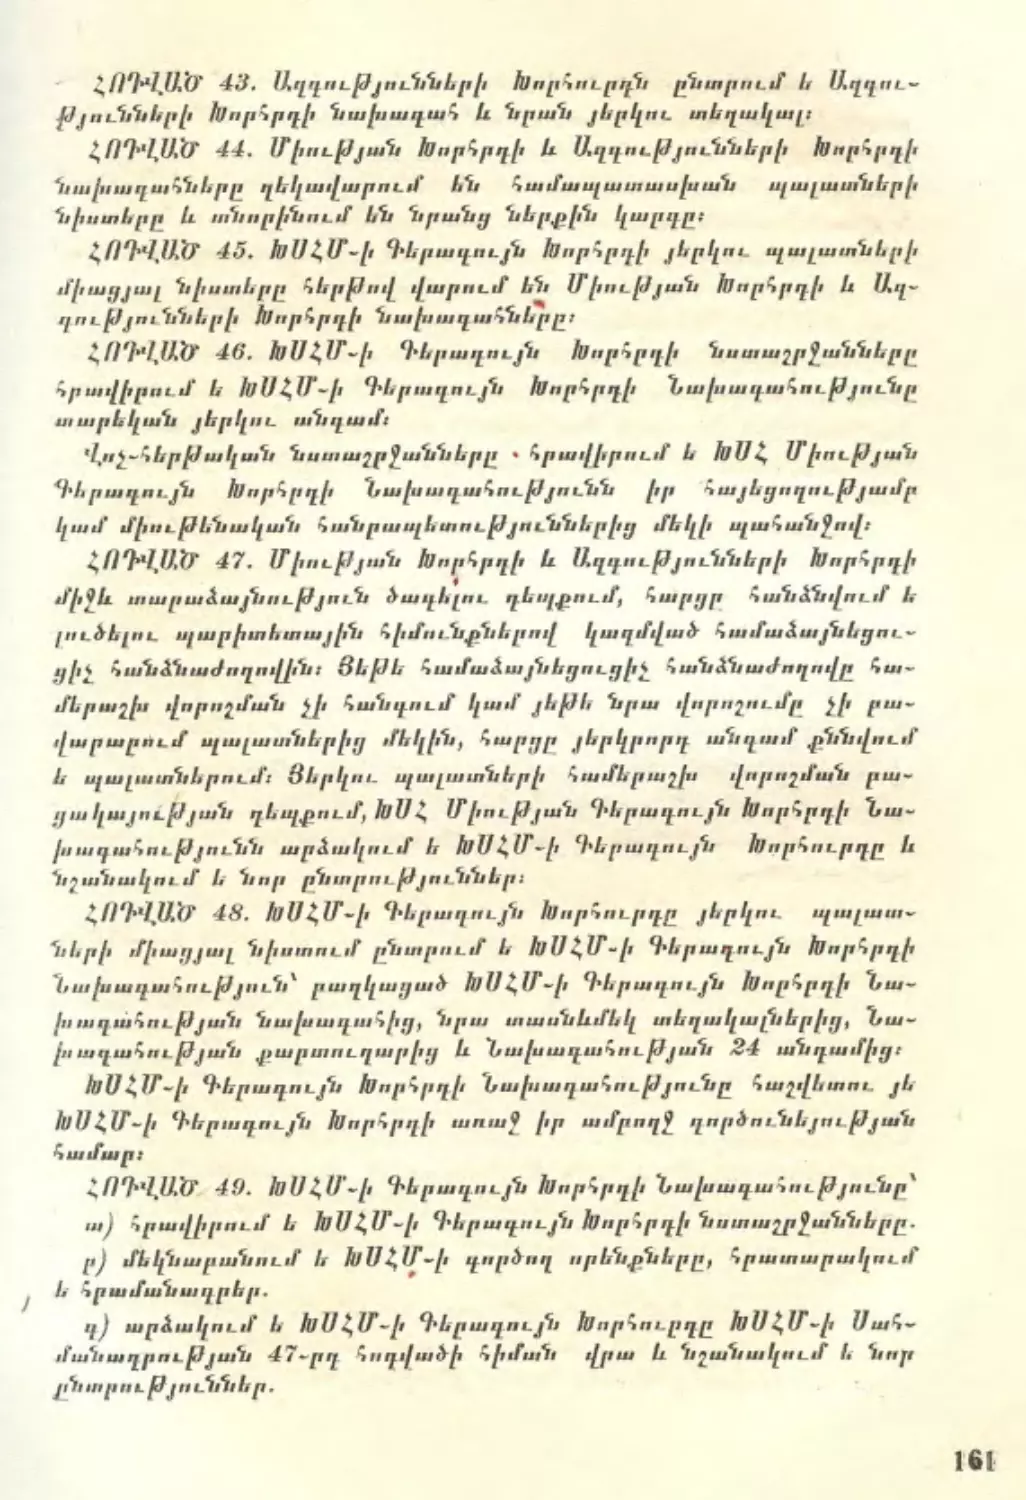 ՀՈԴՎԱԾ 43. Ազգությունների Խորհուրդն ընտրում ե Ազգու-
թյունների Խորհրդի նախագահ և նրան յերկու տեղակալ։
ՀՈԴՎԱԾ 44. Միության Խորհրդի և Ազգությունների Խորհրդի
նախագահները ղեկավարում են համապատասխան պալատների
նիստերը և տնօրինում են նրանց ներքին կարգը։
ՀՈԴՎԱԾ 45. ԽՍՀՄ-ի Գերագույն Խորհրդի յերկու պալատների
միացյալ նիստերը հերթով վարում են Միության Խորհրդի և Ազ-
գությունների Խորհրդի նախագահները։
ՀՈԴՎԱԾ 46. ԽՍՀՄ-ի Գերագույն Խորհրդի նստաշրջանները
հրավիրում ե ԽՍՀՄ-ի Գերագույն Խորհրդի Նախագահությունը
տարեկան յերկու անգամ։
Վոչ-հերթական նստաշրջանները հրավիրում ե ԽՍՀ Միության
Գերագույն Խորհրդի Նախագահությունն իր հայեցողությամբ
կամ միութենական հանրապետություններից մեկի պահանջով։
ՀՈԴՎԱԾ 47. Միության Խորհրդի և Ազգությունների Խորհրդի
միջև տարաձայնություն ծագելու դեպքում, հարցը հանձնվում ե
լուծելու պարիտետային հիմունքներով կազմված համաձայնեցու-
ցիչ հանձնաժողովին։ Յեթե համաձայնեցուցիչ հանձնաժողովը հա-
մերաշխ վորոշման չի հանգում կամ յեթե նրա վորոշումը չի բա-
վարարում պալատներից մեկին, հարցը յերկրորդ անգամ քննվում
ե պալատներում։ Յերկու պալատների համերաշխ վորոշման բա-
ցակայության դեպքում, ԽՍՀ Միության Գերագույն Խորհրդի Նա-
խագահությունն արձակում ե ԽՍՀՄ-ի Գերագույն Խորհուրդը և
նշանակում ե նոր ընտրություններ։
ՀՈԴՎԱԾ 48. ԽՍՀՄ-ի Գերագույն Խորհուրդը յերկու պալատ-
ների միացյալ նիստում ընտրում ե ԽՍՀՄ-ի Գերագույն Խորհրդի
Նախագահություն՝ բաղկացած ԽՍՀՄ-ի Գերագույն Խորհրդի Նա-
խագահության նախագահից, նրա տասնևմեկ տեղակալներից, Նա-
խագահության քարտուղարից և Նախագահության 24 անդամից։
ԽՍՀՄ-ի Գերագույն Խորհրդի Նախագահությունը հաշվետու յե
ԽՍՀՄ-ի Գերագույն Խորհրդի առաջ իր ամբողջ գործունեյության
համար։
ՀՈԴՎԱԾ 49. ԽՍՀՄ-ի Գերագույն Խորհրդի Նախագահությունը՝
ա) հրավիրում ե ԽՍՀՄ-ի Գերագույն Խորհրդի նստաշրջանները.
բ) մեկնաբանում ե ԽՍՀՄ-ի գործող որենքները, հրատարակում
ե հրամանագրեր.
գ) արձակում ե ԽՍՀՄ-ի Գերագույն Խորհուրդը ԽՍՀՄ-ի Սահ-
մանադրության 47-րդ հոդվածի հիման վրա և նշանակում ե նոր
ընտրություններ.
161